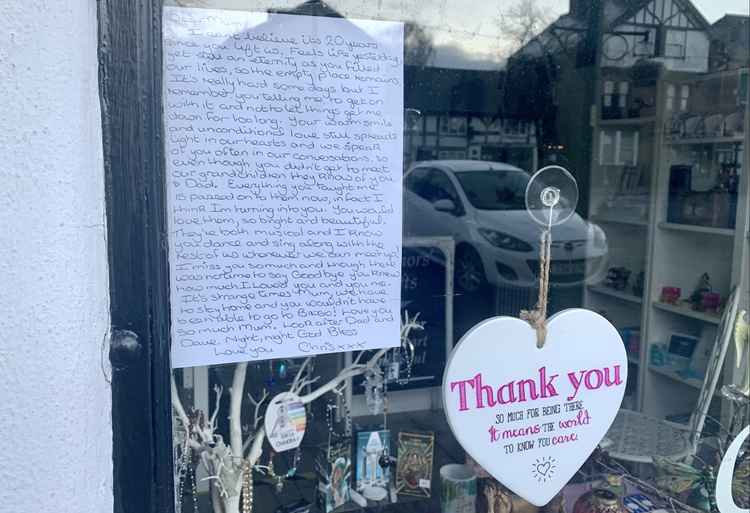 I can't believe its 20 years
since you left us, feels like yesterday,
yet still an eternity as you filled
our lives, so the empty place remains.
It's really hard some days but I
remember you telling me to get on
with it and not to let things get me
down for too long. Your warm smile
and unconditional love still spreads
light in our hearts and we speak
of you often in our conversations, so
even though you didn't get to meet
our grandchildren they know of you
& Dad. Everything you taught me
is passed on to them now, in fact I
think I'm turning into you. You would
love them, so bright and beautiful.
They're both musical and I know
you dance and sing along with the
rest of us whenever we can meet up!
I miss you so much and though there
was no time to say Goodbye you knew
how much I loved you and you me.
It's strange times Mum, we have
to stay home and you wouldn't have
been able to go to Bingo! Love you
so much Mum. Look after Dad and
Dave. Night, night God Bless
Love you Chris xxx
Thank you
SO MUCH FOR BEING THERE
It means the world
TO KNOW YOU care.